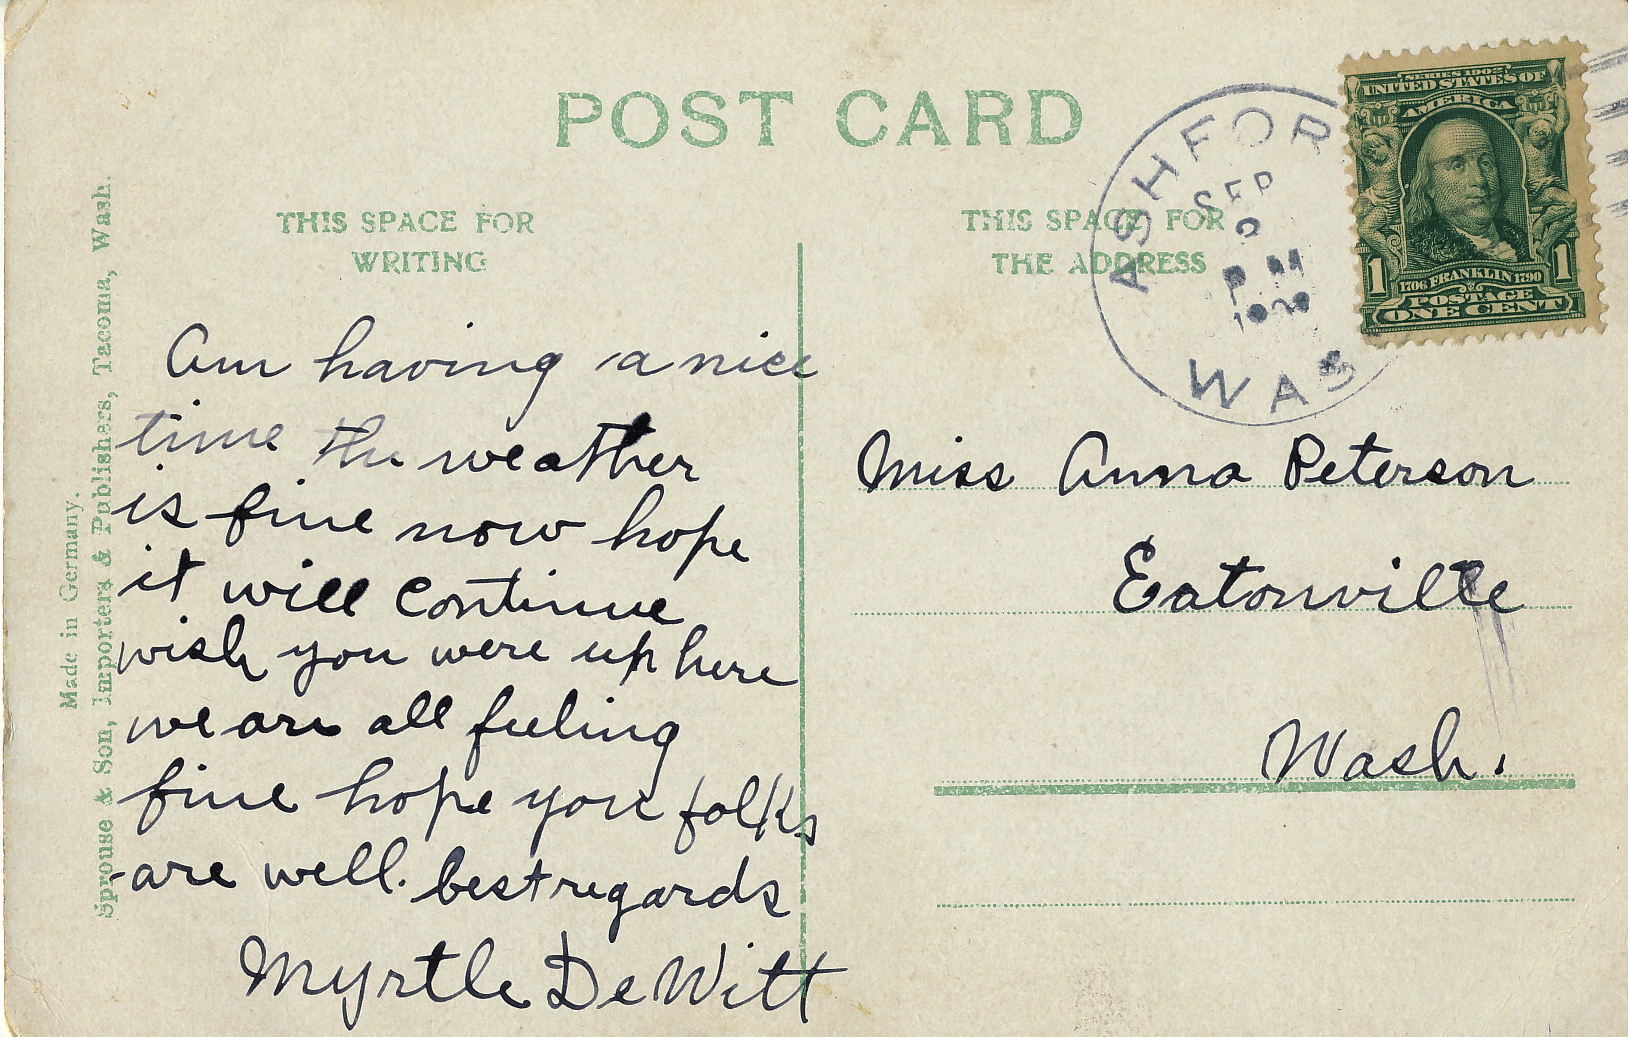 POST CARD
THIS SPACE FOR
WRITING
THIS SPACE FOR
THE ADDRESS
Made in Germany.
Sprouse & Son, Importers & Publishers, Tacoma, Wash.
ASHFOR
SEP
P M
WAS
SERIES 1902
UNITED STATES OF
AMERICA
1
1706 FRANKLIN 1790
1
POSTAGE
ONE CENT
Am having a nice
time the weather
is fine now hope
it will continue
wish you were up here
we are all feeling
fine hope you folks
are well. best regards
Myrtle DeWitt
Miss Anna Peterson
Eatonville
Wash.